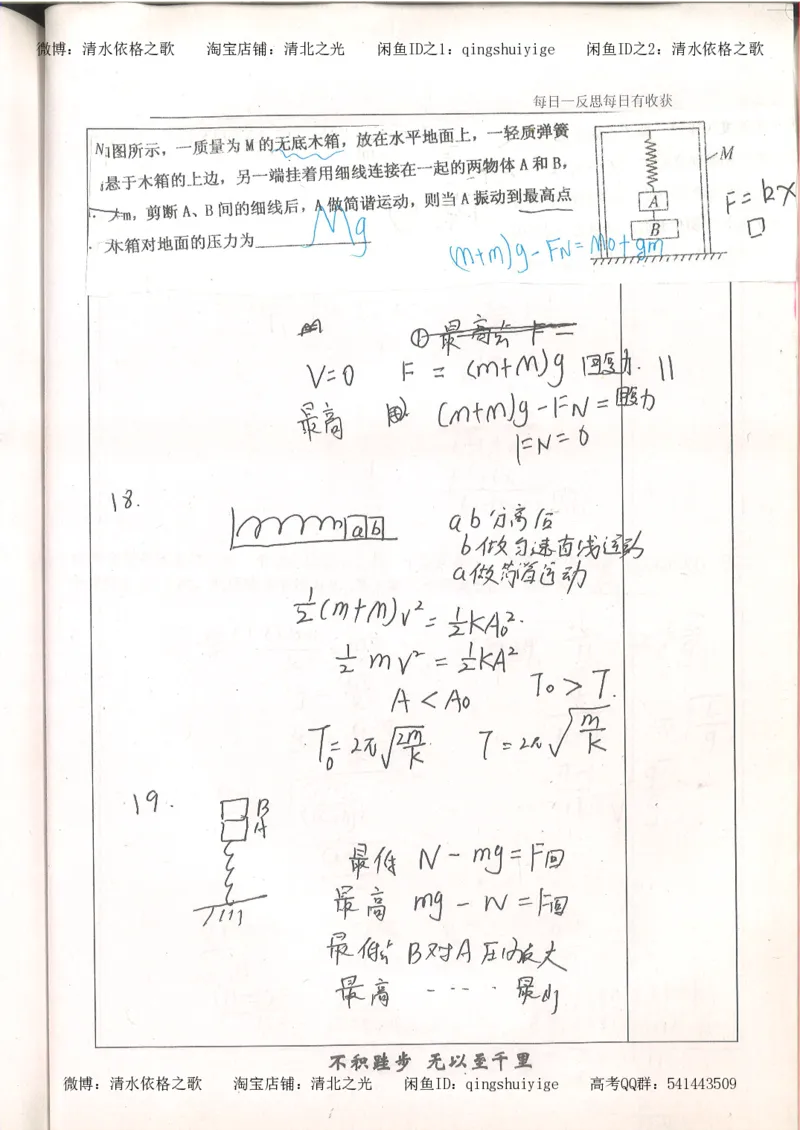 微博：清水依格之歌 淘宝店铺：清北之光 闲鱼ID之1：qingshuiyige 闲鱼ID之2：清水依格之歌
每日一反思每日有收获
图所示，一质量为 M 的无底木箱，放在水平地面上，一轻质弹簧
悬于木箱的上边，另一端挂着用细线连接在一起的两物体 A 和 B，
m，剪断 A、B 间的细线后，A 做简谐运动，则当 A 振动到最高点
木箱对地面的压力为
Mg
M
A
B
F=kx
(m+m)g-FN=M0+gm
①最高点 F=
V=0 F=(m+M)g 回复力
最高 (m+m)g-FN=回复力
FN=0
18.
a b
ab分离后
b做匀速直线运动
a做简谐运动
½(m+m)v²=½KA₀²
½mv²=½KA²
A<A₀ T₀>T.
T₀=2π√(2m/k) T=2π√(m/k)
19.
B
A
最低 N-mg=F回
最高 mg-N=F回
最低点 B对A压力最大
最高 ---· 最小
不积跬步 无以至千里
微博：清水依格之歌 淘宝店铺：清北之光 闲鱼ID：qingshuiyige 高考QQ群：541443509